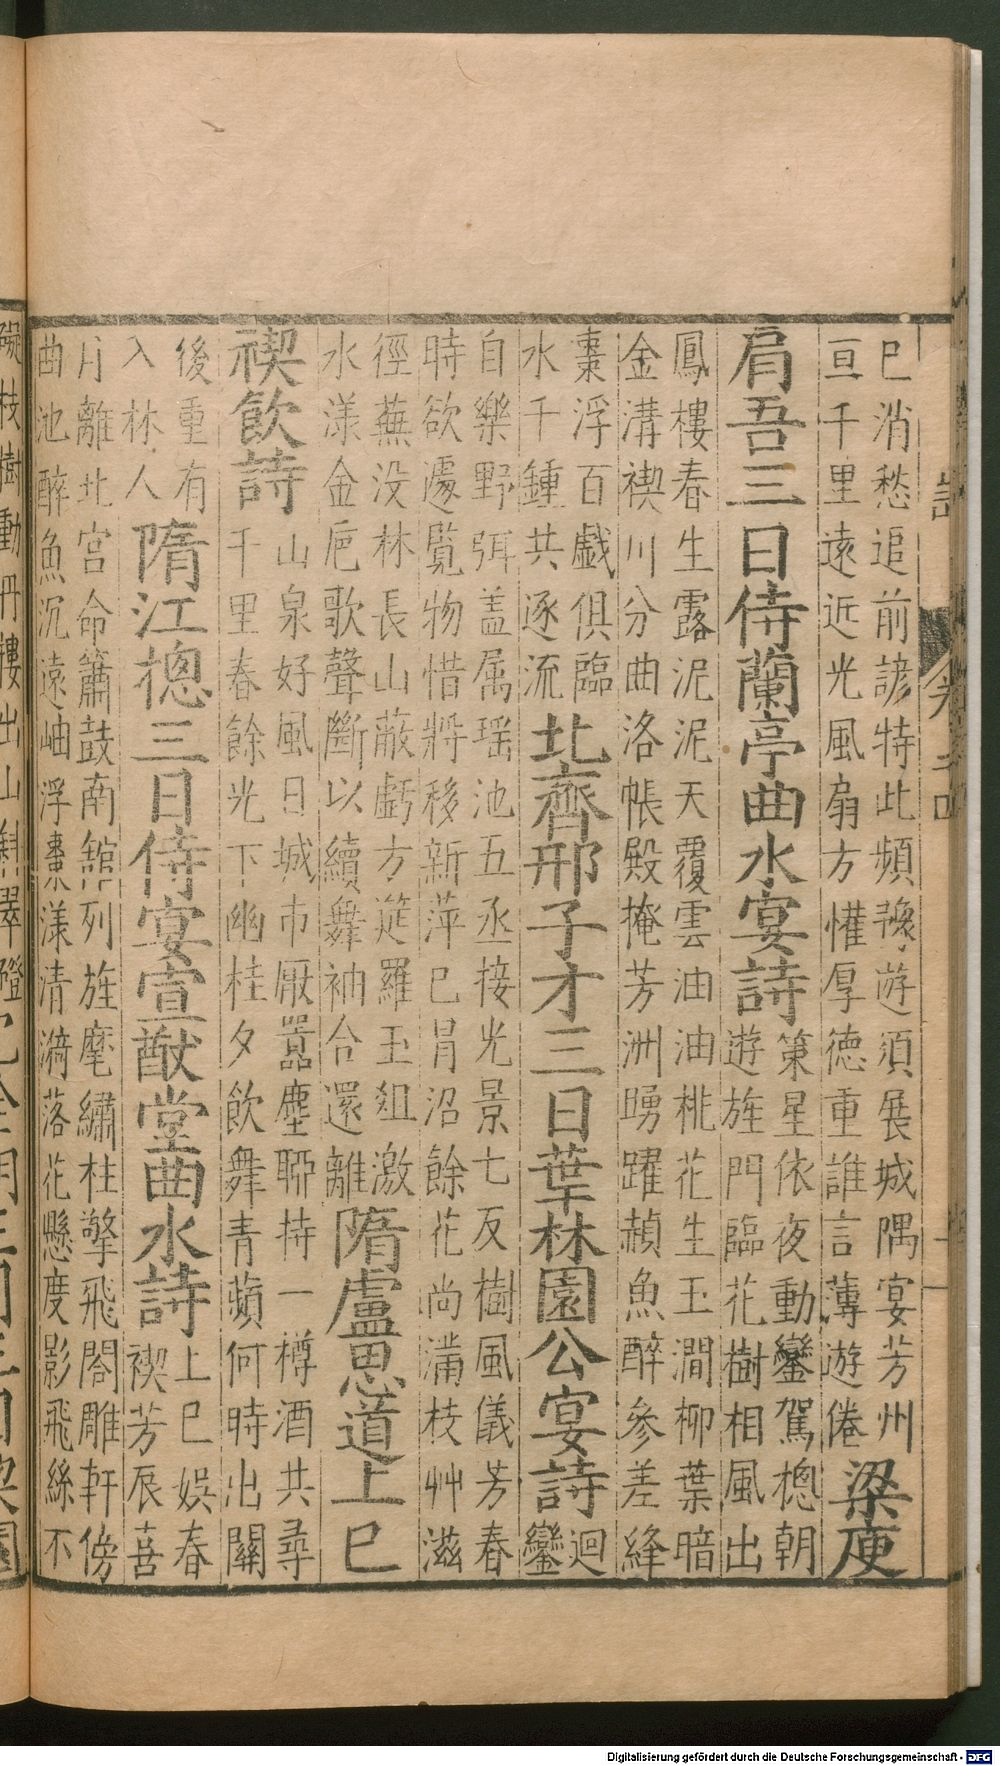 巳消愁追前諺特此頻豫遊須展城隅宴芳州
亘千里遠近光風扇方懽厚德重誰言薄遊倦
梁庾
肩吾三日侍蘭亭曲水宴詩
策星依夜動鑾駕摠朝
遊旌門臨花樹相風出
鳳樓春生露泥泥天覆雲油油桃花生玉澗柳葉暗
金溝禊川分曲洛帳殿掩芳洲踴躍赬魚醉參差絳
棗浮百戲俱臨
水千鍾共逐流
北齊邢子才三日葉林園公宴詩
迴
鑾
自樂野弭盖属瑶池五丞接光景七友樹風儀芳春
時欲遽覽物惜將移新萍巳冒沼餘花尚滿枝艸滋
徑蕪没林長山蔽虧方筵羅玉俎激
水漾金巵歌聲斷以續舞袖合還離
隋盧思道上巳
禊飲詩
山泉好風日城市厭囂塵聊持一樽酒共尋
千里春餘光下幽桂夕飲舞青蘋何時出關
後重有
入林人
隋江摠三日侍宴宣猷堂曲水詩
上巳娯春
禊芳辰喜
月離北宫命簫鼓南舘列旌麾繡柱擎飛閣雕軒傍
曲池醉魚沉遠岫浮棗漾清漪落花懸度影飛絲不
礙枝樹動丹樓出山斜翠磴
Digitalisierung gefördert durch die Deutsche Forschungsgemeinschaft - DFG